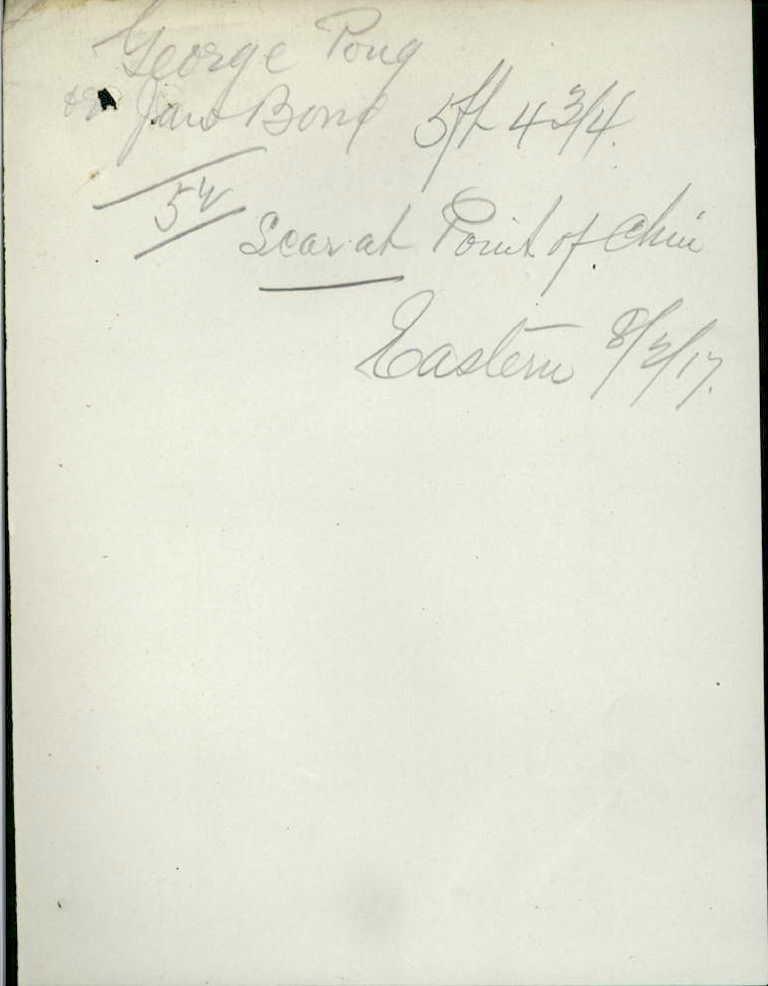 George Pong
or Jaw Bong 5ft 4 3/4.
54
Scar at Point of Chin
Eastern 8/2/17.